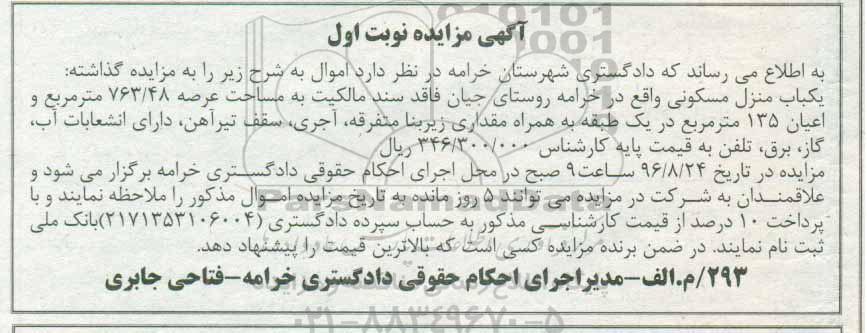 آگهی مزایده نوبت اول
به اطلاع می رساند که دادگستری شهرستان خرامه در نظر دارد اموال به شرح زیر را به مزایده گذاشته:
یکباب منزل مسکونی واقع در خرامه روستای جیان فاقد سند مالکیت به مساحت عرصه ۷۶۳/۴۸ مترمربع و
اعیان ۱۳۵ مترمربع در یک طبقه به همراه مقداری زیربنا متفرقه، آجری، سقف تیرآهن، دارای انشعابات آب،
گاز، برق، تلفن به قیمت پایه کارشناس ۳۴۶/۳۰۰/۰۰۰ ریال
مزایده در تاریخ ۹۶/۸/۲۴ ساعت۹ صبح در محل اجرای احکام حقوقی دادگستری خرامه برگزار می شود و
علاقمندان به شرکت در مزایده می توانند ۵ روز مانده به تاریخ مزایده اموال مذکور را ملاحظه نمایند و با
پرداخت ۱۰ درصد از قیمت کارشناسی مذکور به حساب سپرده دادگستری (۲۱۷۱۳۵۳۱۰۶۰۰۴)بانک ملی
ثبت نام نمایند. در ضمن برنده مزایده کسی است که بالاترین قیمت را پیشنهاد دهد.
۲۹۳/م.الف-مدیراجرای احکام حقوقی دادگستری خرامه-فتاحی جابری
۰۲۱-۸۸۳۴۹۶۷۰-۵